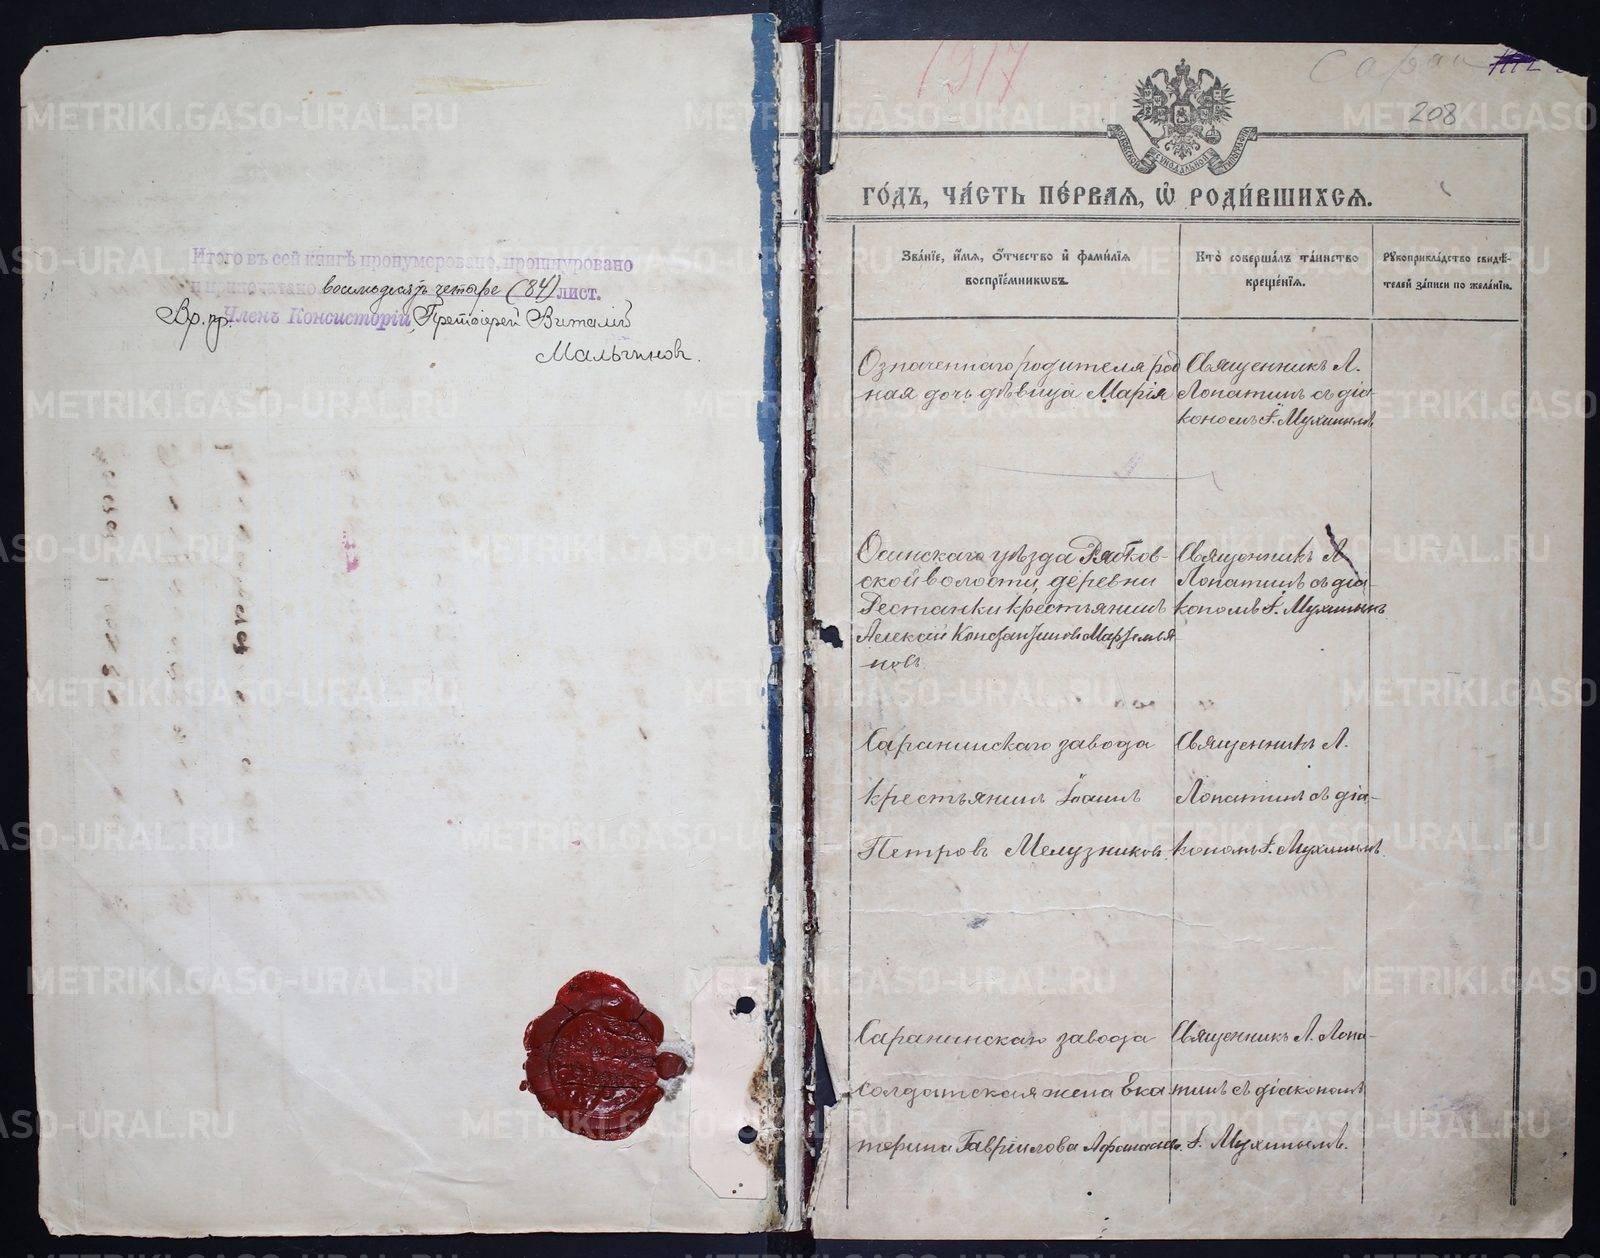 Итого въ сей книгѣ пронумеровано, прошнуровано
и припечатано восмьдесятъ четыре (84) лист.
Вр. пр. Членъ Консисторіи, Протоіерей Виталій
Мальгиновъ.
1917
208
ГО́ДЪ, ЧА́СТЬ ПЕ́РВАЯ, Ѽ РОДИ́ВШИХСЯ.
Зва́нїе, и҆́мя, ѻ҆́тчество и҆ фамі́лїя воспрїе́мникѡвъ.
Кто̀ соверша́лъ та́инство креще́нїя.
Рꙋкоприкла́дство свидѣ́телей за́писи по жела́нїю.
Означеннаго родителя род
ная дочь дѣвица Марія
Священникъ Л.
Лопатинъ съ діа-
кономъ Г. Мухинымъ
Осинскаго уѣзда Рябков-
ской волости, деревни
Рестанки крестьянинъ
Алексѣй Константиновъ Мартемья
новъ
Священникъ Л
Лопатинъ съ діа-
кономъ Г. Мухинымъ
Саранинскаго завода
крестьянинъ Іоаннъ
Петровъ Мелузниковъ
Священникъ Л.
Лопатинъ съ діа-
кономъ Г. Мухинымъ
Саранинскаго завода
солдатская жена Ека
терина Гавріилова
Священникъ Л. Лопа-
тинъ съ діакономъ
Г. Мухинымъ.
METRIKI.GASO-URAL.RU